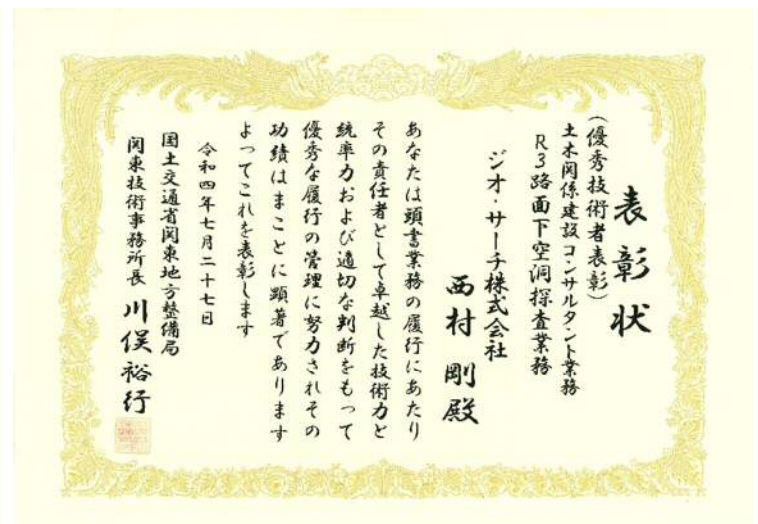 表彰状
(優秀技術者表彰)
土木関係建設コンサルタント業務
R3路面下空洞探査業務
ジオ・サーチ株式会社
西村剛殿
あなたは頭書業務の履行にあたり
その責任者として卓越した技術力と
統率力および適切な判断をもって
優秀な履行の管理に努力されその
功績はまことに顕著であります
よってこれを表彰します
令和四年七月二十七日
国土交通省関東地方整備局
関東技術事務所長 川俣裕行